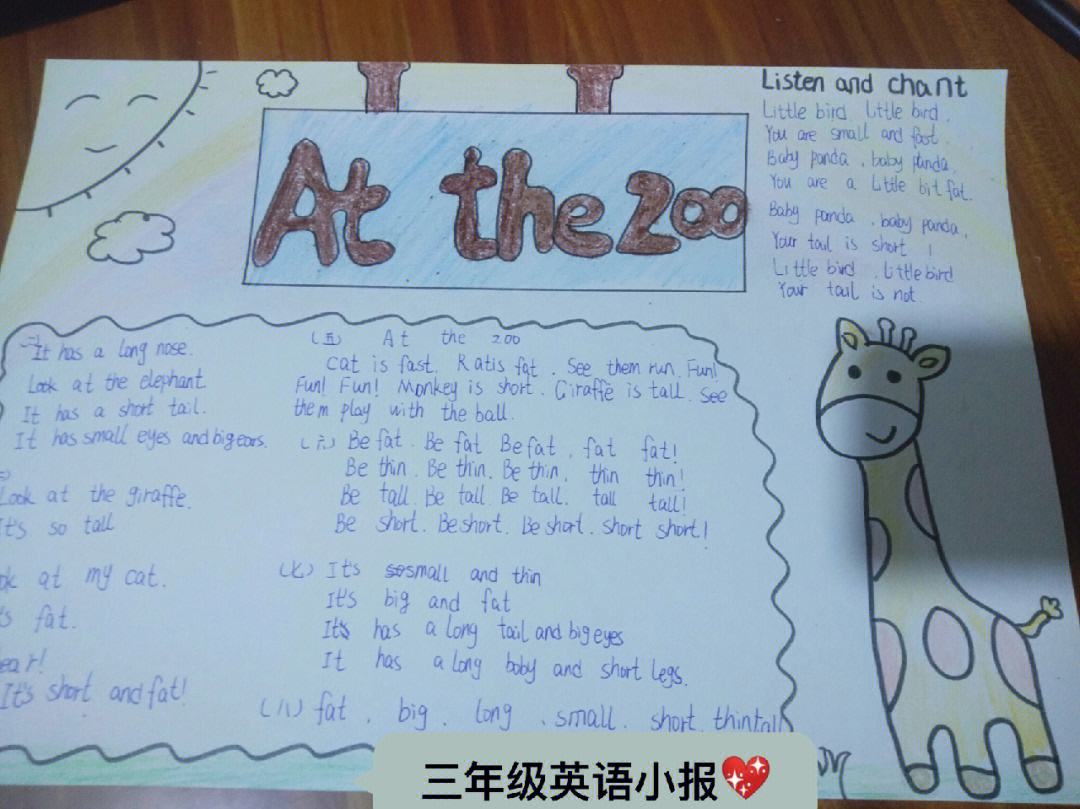 At the zoo
Listen and chant
Little bird, Little bird,
You are small and fast.
Baby panda, baby panda,
You are a little bit fat.
Baby panda, baby panda,
Your tail is short !
Little bird, Little bird
Your tail is not.
It has a long nose.
Look at the elephant.
It has a short tail.
It has small eyes and big ears.
Look at the giraffe.
It's so tall
at my cat.
fat.
It's short and fat!
(五) At the zoo
Cat is fast. Rat is fat. See them run. Fun!
Fun! Fun! Monkey is short. Giraffe is tall. See
them play with the ball.
(六) Be fat. Be fat Be fat, fat fat!
Be thin. Be thin. Be thin, thin thin!
Be tall. Be tall. Be tall. tall tall!
Be short. Be short. Be short. short short!
(七) It's small and thin
It's big and fat
It's has a long tail and big eyes
It has a long baby and short legs.
(八) fat, big, long, small, short, thin tall
三年级英语小报💖